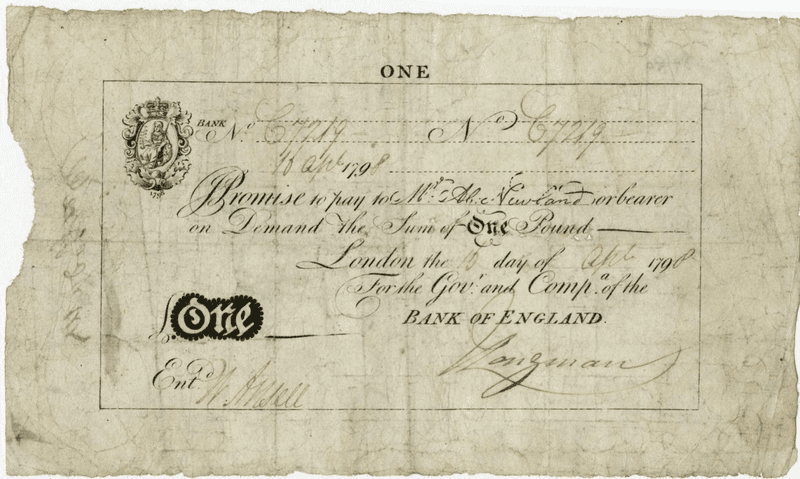 ONE
BANK No. C7219 No. C7219
16 Apl 1798
I Promise to pay to Mr. Abm. Newland or bearer
on Demand the Sum of One Pound
London the 16 day of Apl 1798
For the Govr. and Compa. of the
BANK OF ENGLAND.
£ One
Entd.